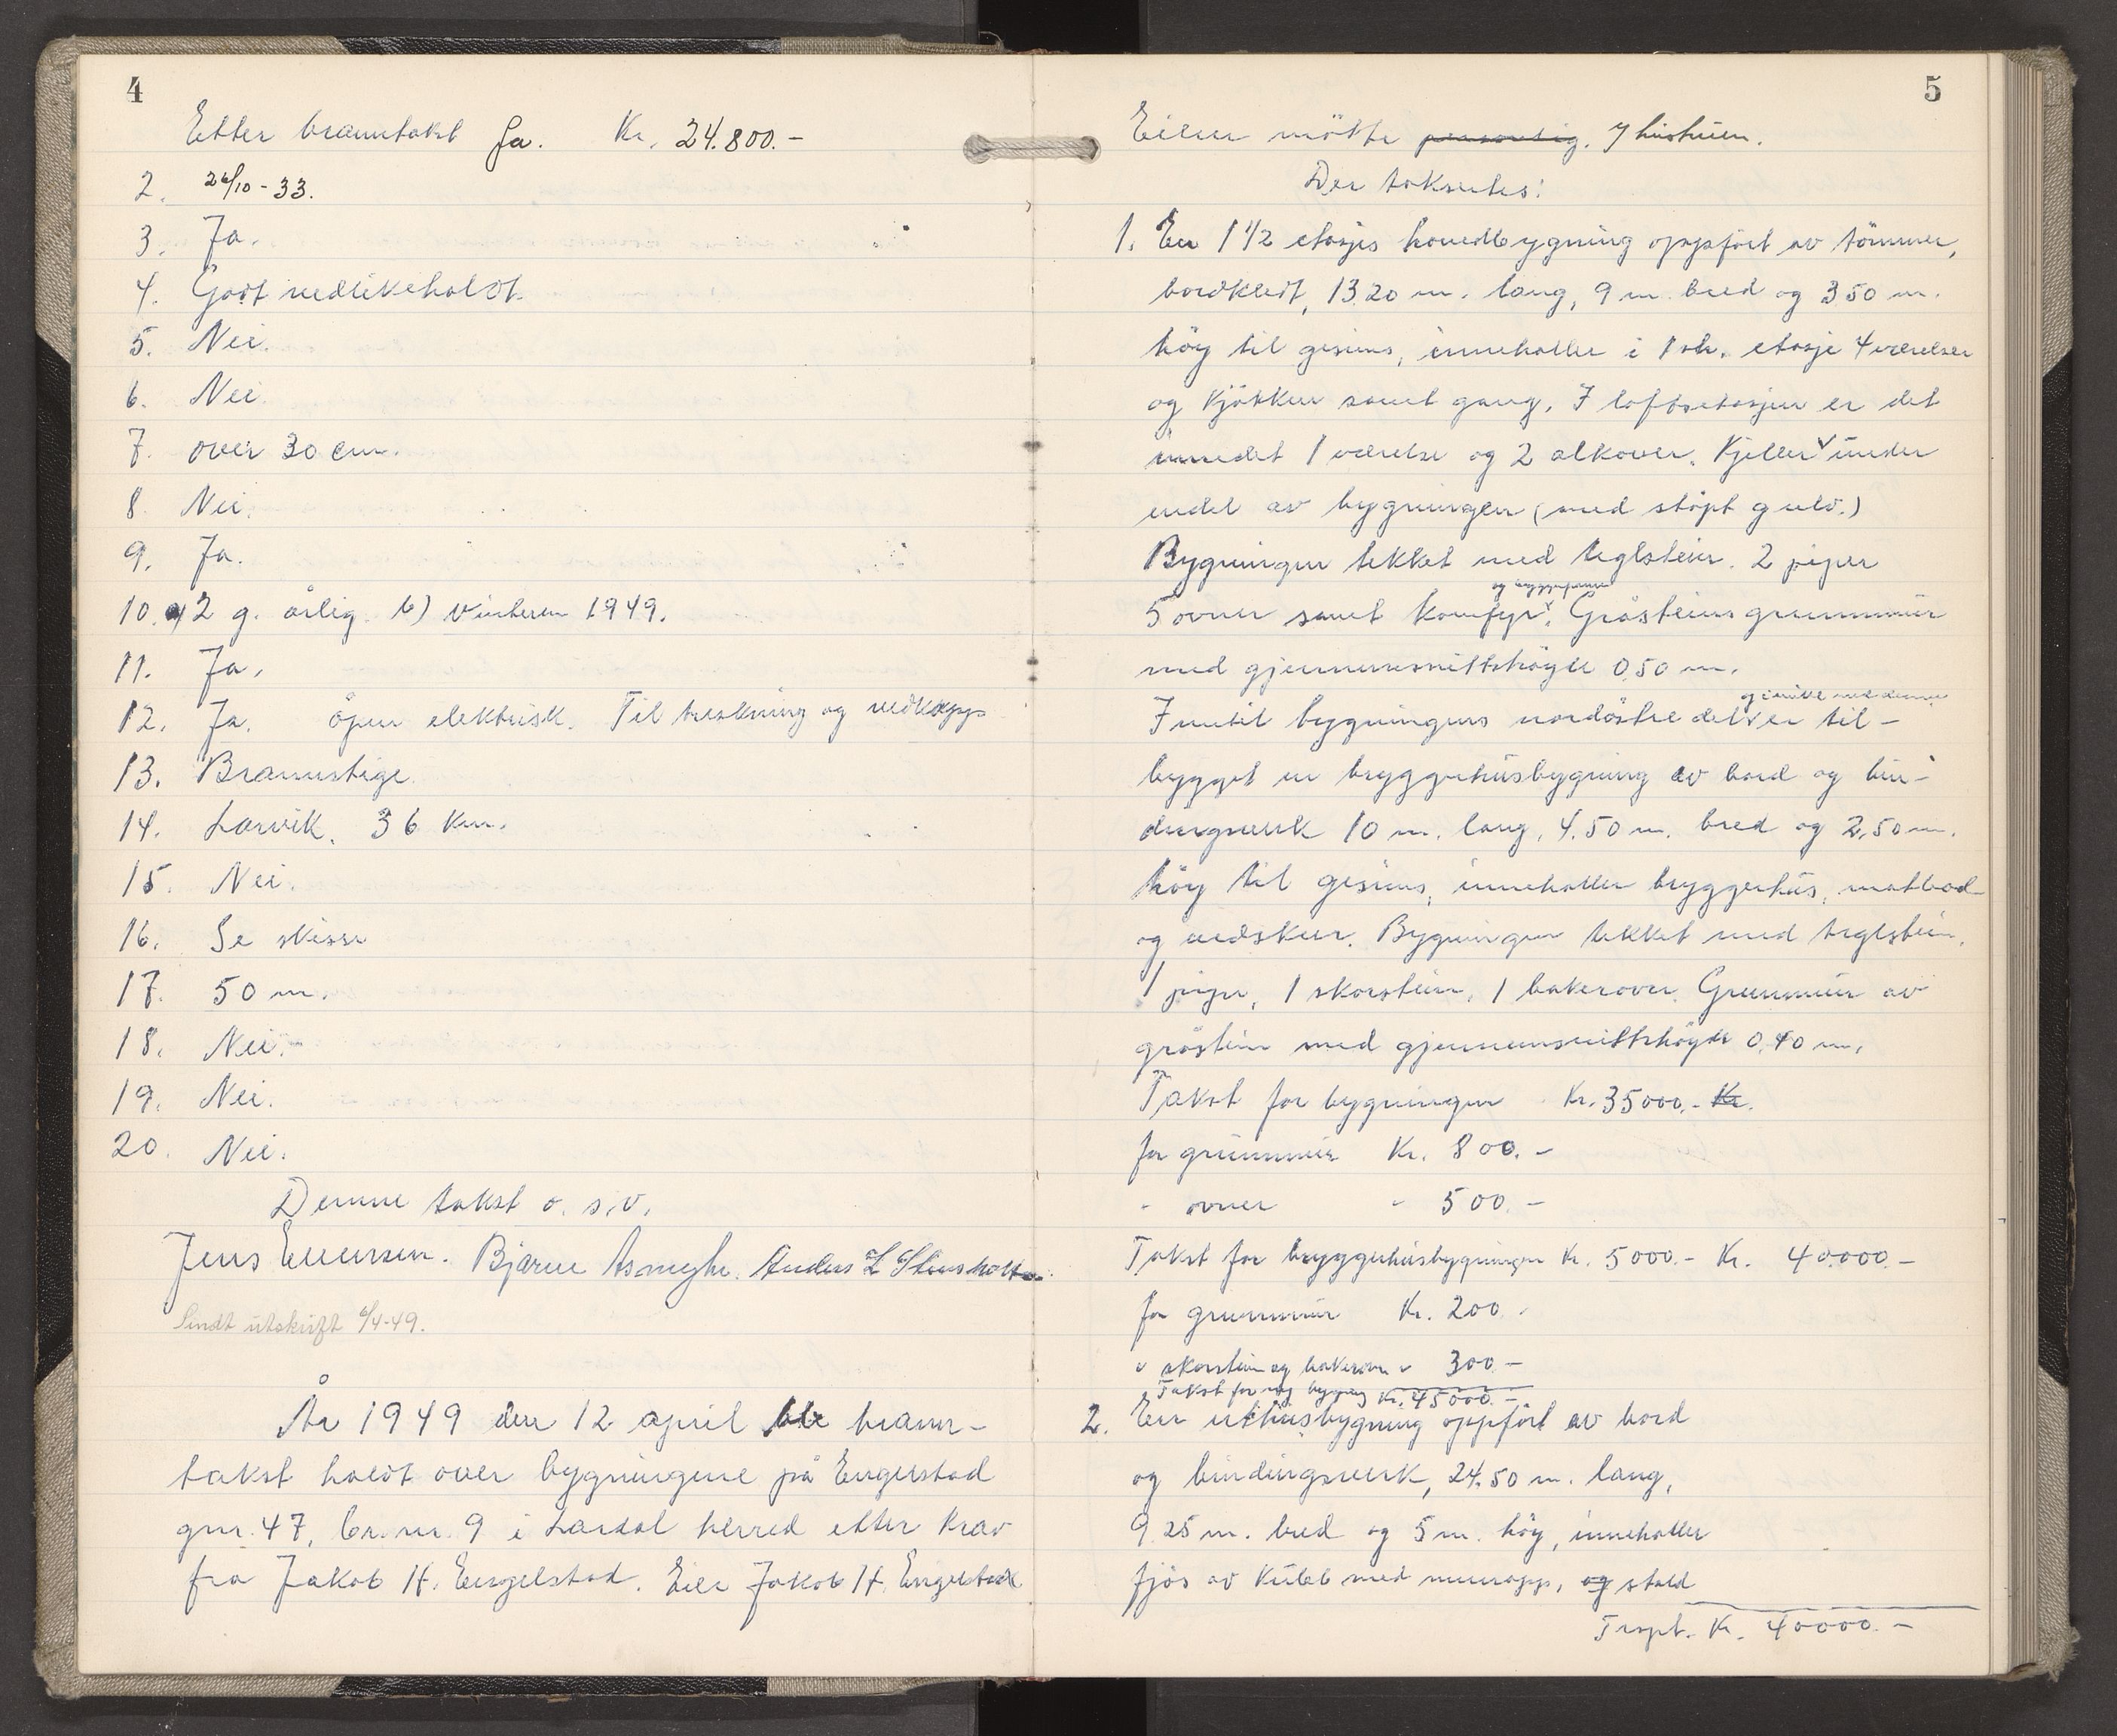 4
Etter branntakst Ja. Kr. 24.800.-
2. 26/10-33.
3. Ja.
4. Godt vedlikeholdt.
5. Nei.
6. Nei.
7. over 30 cm.
8. Nei.
9. Ja.
10. a) 2 g. årlig. b) Vinteren 1949.
11. Ja.
12. Ja. åpen elektrisk. Til treskning og vedkapp
13. Brannstige.
14. Larvik. 36 km.
15. Nei.
16. Se skisse
17. 50 m.
18. Nei.
19. Nei.
20. Nei.
Denne takst o. s. v.
Jens Evensen. Bjarne Asmyhr. Anders L Stensholt
Sendt utskrift 6/4-49.
År 1949 den 12 april ble brann-
takst holdt over bygningene på Engelstad
gnr. 47, br. nr. 9 i Lardal herred etter krav
fra Jakob H. Engelstad. Eier Jakob H. Engelstad
5
Eieren møtte personlig. v/ hustruen.
Der takseres:
1. En 1 1/2 etasjes hovedbygning oppført av tømmer,
bordkledt, 13.20 m. lang, 9 m. bred og 3.50 m.
høy til gesims, inneholder i 1ste. etasje 4 værelser
og kjøkken samt gang. I loftsetasjen er det
innredet 1 værelse og 2 alkover. Kjeller under
endel av bygningen (med støpt gulv.)
Bygningen tekket med teglstein. 2 piper
og bryggepanne
5 ovner samt komfyr. Gråsteins grunnmur
med gjennemsnittshøyde 0.50 m.
og i vinkel med denne
Inntil bygningens nordøstre del er til-
bygget en bryggerhusbygning av bord og bin-
dingsverk 10 m. lang, 4.50 m. bred og 2.50 m.
høy til gesims, inneholder bryggerhus, matbod
og vedskur. Bygningen tekket med teglstein,
1 pipe, 1 skorstein, 1 bakerovn. Grunnmur av
gråstein med gjennemsnittshøyde 0.40 m.
Takst for bygningen Kr. 35000.- Kr.
for grunnmur Kr. 800.-
" ovner " 500.-
Takst for bryggerhusbygningen Kr. 5000.- Kr. 40000.-
for grunnmur Kr. 200.-
" skorstein og bakerovn " 300.-
Takst for bygning Kr. 45000.-
2. En uthusbygning oppført av bord
og bindingsverk, 24.50 m. lang,
9.25 m. bred og 5 m. høy, inneholder
fjøs av kubb med murpuss, og stald
Trspt. Kr. 40000.-